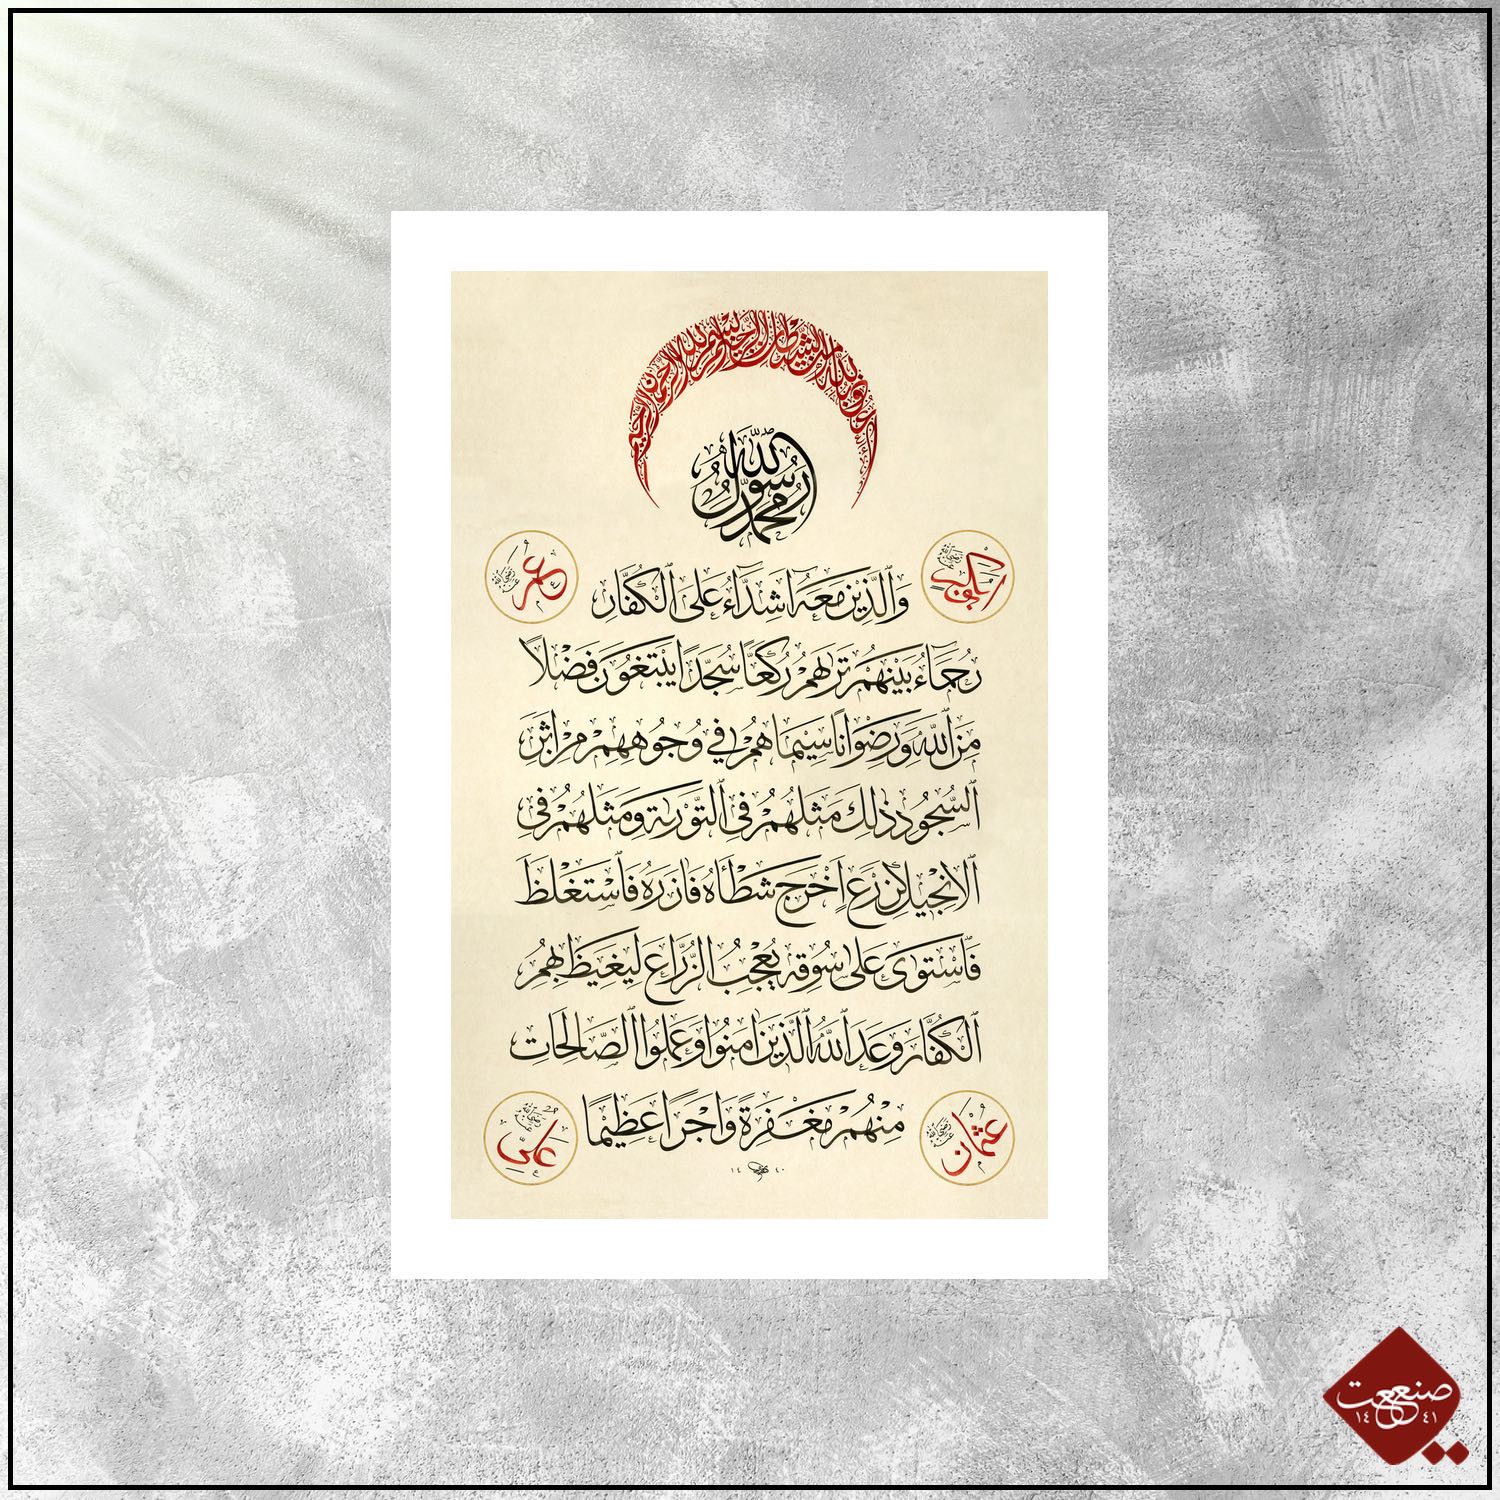 أعوذ بالله من الشيطان الرجيم بسم الله الرحمن الرحيم
محمد رسول الله
ابوبكر رضی الله عنه
عمر رضی الله عنه
وَٱلَّذِينَ مَعَهُ اَشِدَّاءُ عَلَى ٱلْكُفَّارِ
رُحَمَاءُ بَيْنَهُمْ تَرٰيهُمْ رُكَّعًا سُجَّدًا يَبْتَغُونَ فَضْلًا
مِنَ ٱللّٰهِ وَرِضْوَانًا سِيمَاهُمْ فِي وُجُوهِهِمْ مِنْ اَثَرِ
ٱلسُّجُودِ ذٰلِكَ مَثَلُهُمْ فِي ٱلتَّوْرٰيةِ وَمَثَلُهُمْ فِي
ٱلْاِنْجِيلِ كَزَرْعٍ اَخْرَجَ شَطْأَهُ فَاٰزَرَهُ فَٱسْتَغْلَظَ
فَٱسْتَوٰى عَلٰى سُوقِهِ يُعْجِبُ ٱلزُّرَّاعَ لِيَغِيظَ بِهِمُ
ٱلْكُفَّارَ وَعَدَ ٱللّٰهُ ٱلَّذِينَ اٰمَنُوا وَعَمِلُوا ٱلصَّالِحَاتِ
مِنْهُمْ مَغْفِرَةً وَاَجْرًا عَظِيمًا
عثمان رضی الله عنه
علي رضی الله عنه
١٤ ٤٠
صنعت
١٤ ٤١